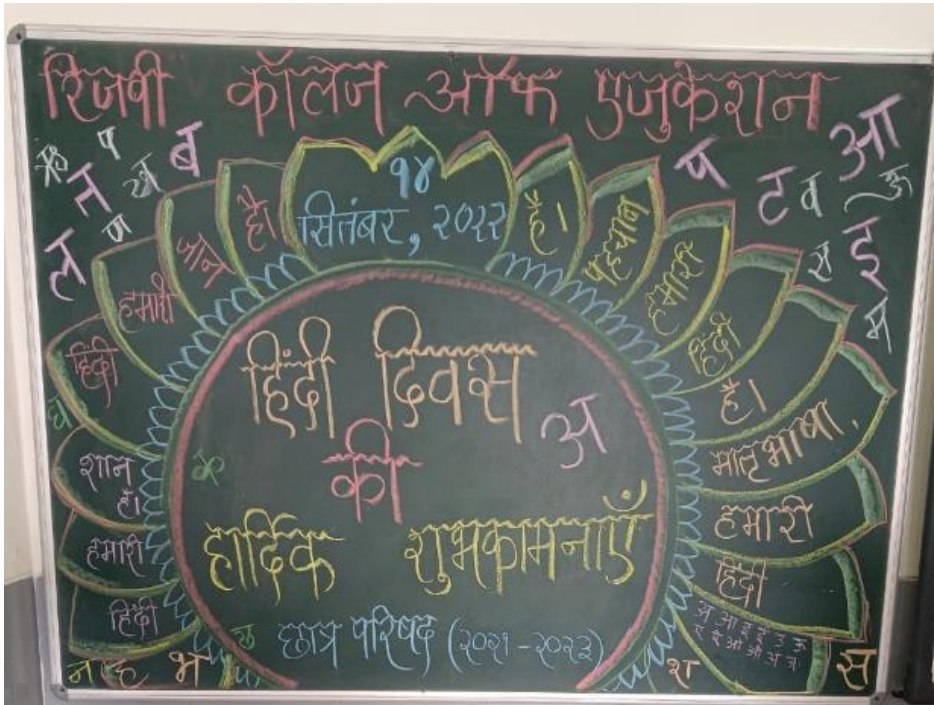 रिजवी कॉलेज ऑफ एजुकेशन
१४
सितंबर, २०२२
हिंदी
हमारी
शान
है।
हिंदी
हमारी
जान
है।
हिंदी
हमारी
पहचान
है।
हिंदी
हमारी
मातृभाषा
है।
हिंदी दिवस
की
हार्दिक शुभकामनाएँ
छात्र परिषद (२०२१-२०२३)
अ
ब
प
त
ण
ल
ष
ट
व
आ
इ
स
म
भ
श
स